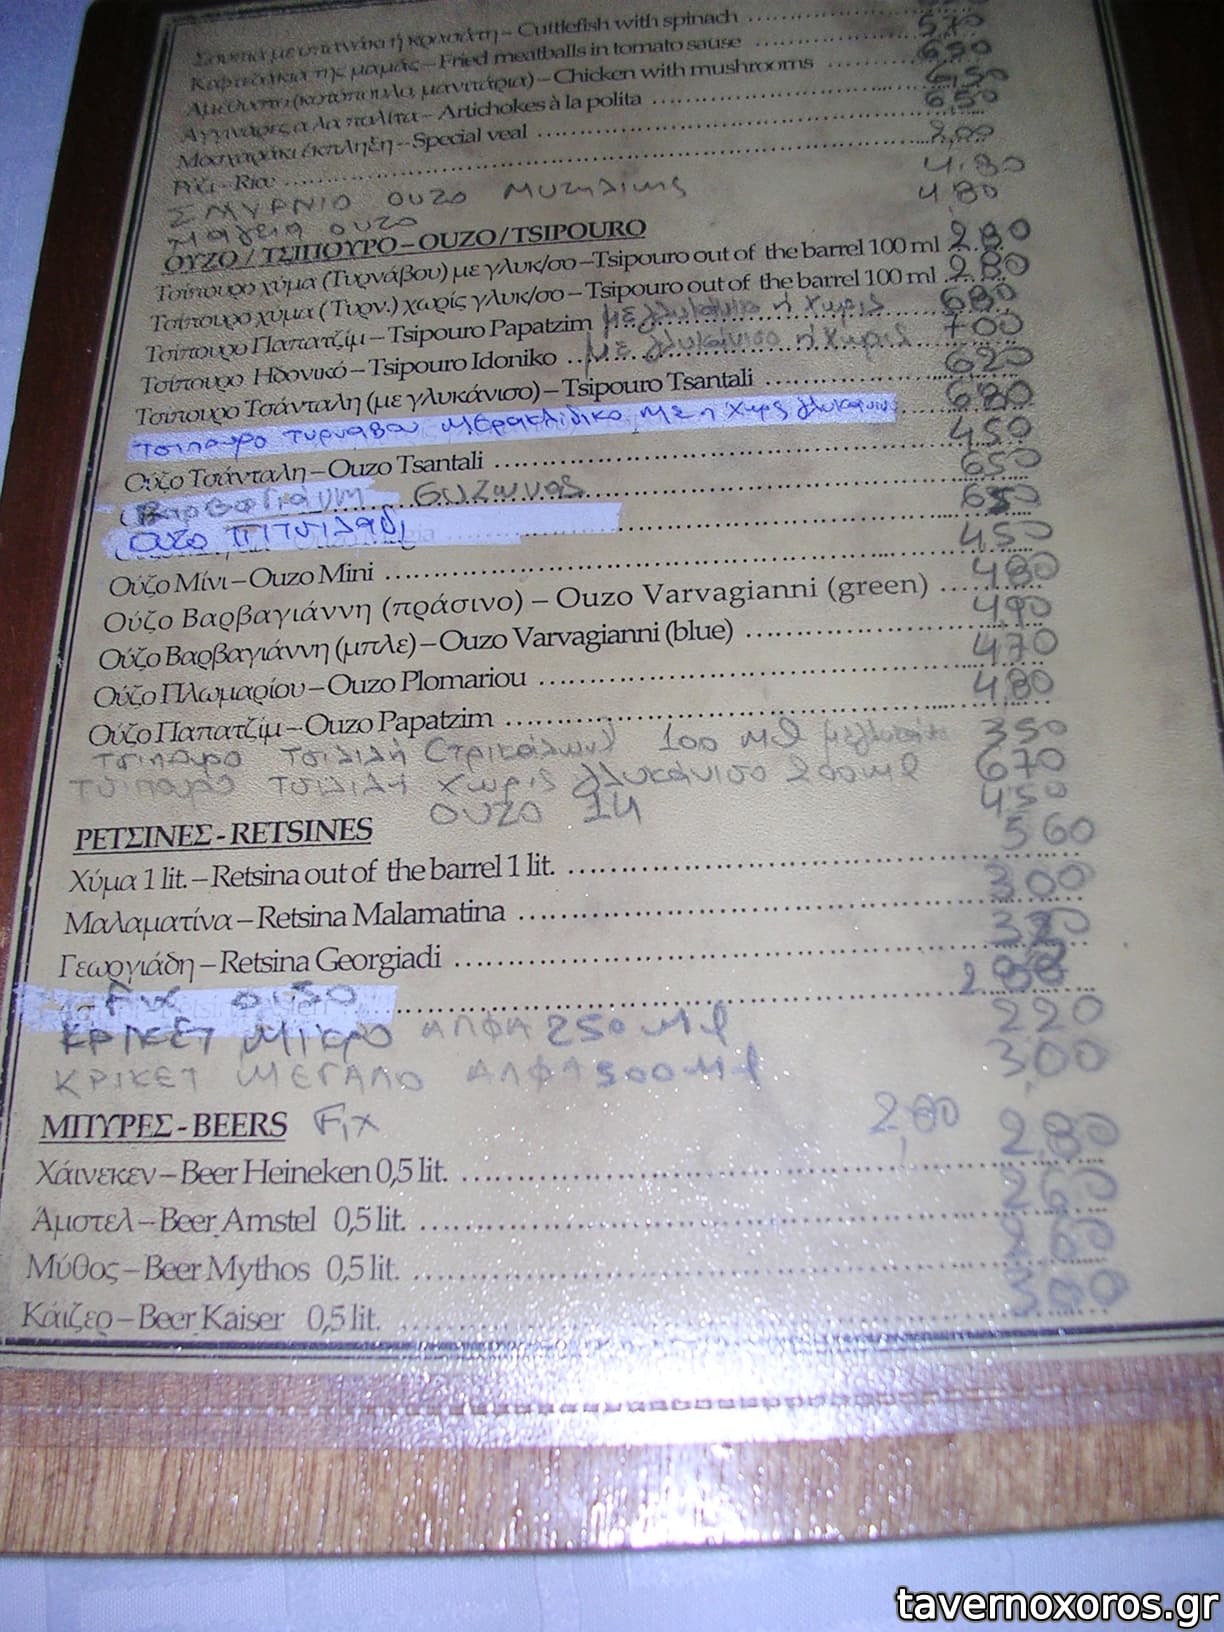 Σουπιά με σπανάκι ή κρασάτη – Cuttlefish with spinach ........ 570
Κεφτεδάκια της μαμάς – Fried meatballs in tomato sause ........ 650
Αμέθυστο (κοτόπουλο, μανιτάρια) – Chicken with mushrooms ........ 6,50
Αγγινάρες α λα πολίτα – Artichokes à la polita ........ 6,50
Μοσχαράκι έκπληξη – Special veal ........
Ρύζι – Rice ........ 2,00
ΣΜΥΡΝΙΟ ΟΥΖΟ ΜΥΤΗΛΙΝΗΣ 4.80
Μαγεία ουζο 480
ΟΥΖΟ / ΤΣΙΠΟΥΡΟ – OUZO / TSIPOURO
Τσίπουρο χύμα (Τυρνάβου) με γλυκ/σο – Tsipouro out of the barrel 100 ml 280
Τσίπουρο χύμα (Τυρν.) χωρίς γλυκ/σο – Tsipouro out of the barrel 100 ml ........ 280
Τσίπουρο Παπατζίμ – Tsipouro Papatzim με γλυκάνισο ή χωρίς 680
Τσίπουρο Ηδονικό – Tsipouro Idoniko .. με γλυκάνισο ή χωρίς 700
Τσίπουρο Τσάνταλη (με γλυκάνισο) – Tsipouro Tsantali ........ 620
τσιπουρο τυρναβου μερακλιδικο με η χωρις γλυκανισο 680
Ούζο Τσάνταλη – Ouzo Tsantali ........ 450
Βαρβαγιάννη ευζωνας 650
Ουζο πιτσιλαδι 650
Ούζο Μίνι – Ouzo Mini ........ 450
Ούζο Βαρβαγιάννη (πράσινο) – Ouzo Varvagianni (green) ........ 480
Ούζο Βαρβαγιάννη (μπλε) – Ouzo Varvagianni (blue) ........ 490
Ούζο Πλωμαρίου – Ouzo Plomariou ........ 470
Ούζο Παπατζίμ – Ouzo Papatzim ........ 480
τσιπουρο τσιλιλή (τρικάλων) 100 ml 350
τσιπουρο τσιλιλή χωρις γλυκάνισο 200ml 670
ουζο 14 450
ΡΕΤΣΙΝΕΣ - RETSINES
Χύμα 1 lit. – Retsina out of the barrel 1 lit. ........ 560
Μαλαματίνα – Retsina Malamatina ........ 300
Γεωργιάδη – Retsina Georgiadi ........
Fix
ΚΡΙΚΕΤ ΜΙΚΡΟ ΑΛΦΑ 250 ml 220
ΚΡΙΚΕΤ ΜΕΓΑΛΟ ΑΛΦΑ 500 ml 300
ΜΠΥΡΕΣ - BEERS Fix 2,80
Χάινεκεν – Beer Heineken 0,5 lit. ........ 280
Άμστελ – Beer Amstel 0,5 lit. ........ 260
Μύθος – Beer Mythos 0,5 lit. ........ 260
Κάιζερ – Beer Kaiser 0,5 lit. ........ 300
tavernoxoros.gr